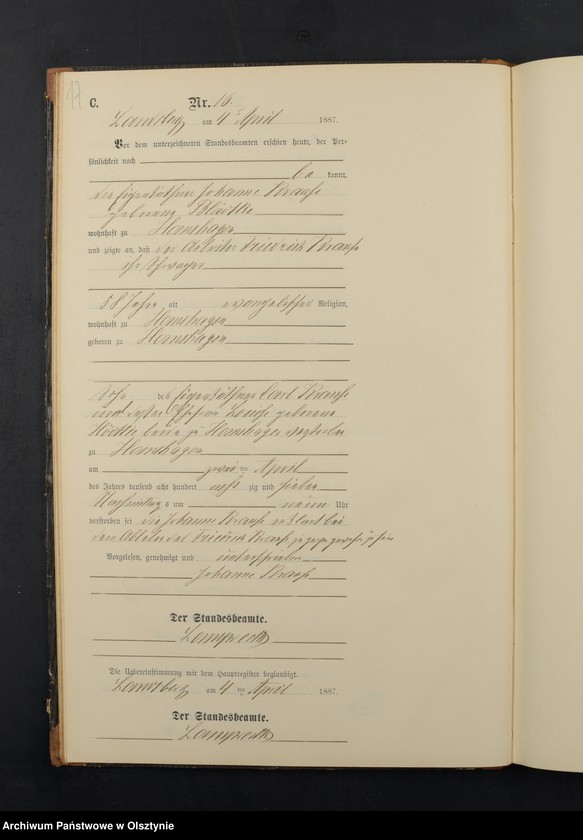 17
C.
Nr. 16.
am 4 April 1887.
Vor dem unterzeichneten Standesbeamten erschien heute, der Per-
sönlichkeit nach
be kannt,
die Eigenkäthner Johanne Krause
geborene
wohnhaft zu Hanshagen
und zeigte an, daß der Arbeiter Friedrich Krause
ihr Schwager
58 Jahre alt evangelischer Religion,
wohnhaft zu Hanshagen
geboren zu Hanshagen
Sohn des Eigenkäthners Carl Krause
und dessen Ehefrau Louise geborene
beide zu Hanshagen verstorben
zu Hanshagen
am zwei ten April
des Jahres tausend acht hundert acht zig und sieben
Nachmittags um neun Uhr
verstorben sei die Johanne Krause erklärt bei
dem Ableben des Friedrich Krause zugegen gewesen zu sein
Vorgelesen, genehmigt und unterschrieben
Johanne Krause
Der Standesbeamte.
Die Uebereinstimmung mit dem Hauptregister beglaubigt.
am 4 ten April 1887.
Der Standesbeamte.
Archiwum Państwowe w Olsztynie